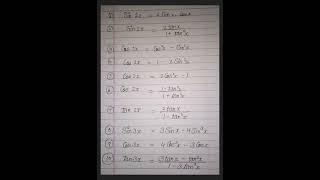 ① Sin 2x = 2 Sin x . Cos x
② Sin 2x = 2 tan x
1 + tan²x
③ Cos 2x = Cos²x - Sin²x
④ Cos 2x = 1 - 2 Sin²x
⑤ Cos 2x = 2 Cos²x - 1
⑥ Cos 2x = 1 - tan²x
1 + tan²x
⑦ tan 2x = 2 tan x
1 - tan²x
⑧ Sin 3x = 3 Sin x - 4 Sin³x
⑨ Cos 3x = 4 Cos³x - 3 Cos x
⑩ tan 3x = 3 tan x - tan³x
1 - 3 tan²x